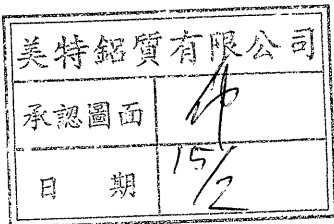 美特鋁質有限公司
承認圖面
日 期 15/2